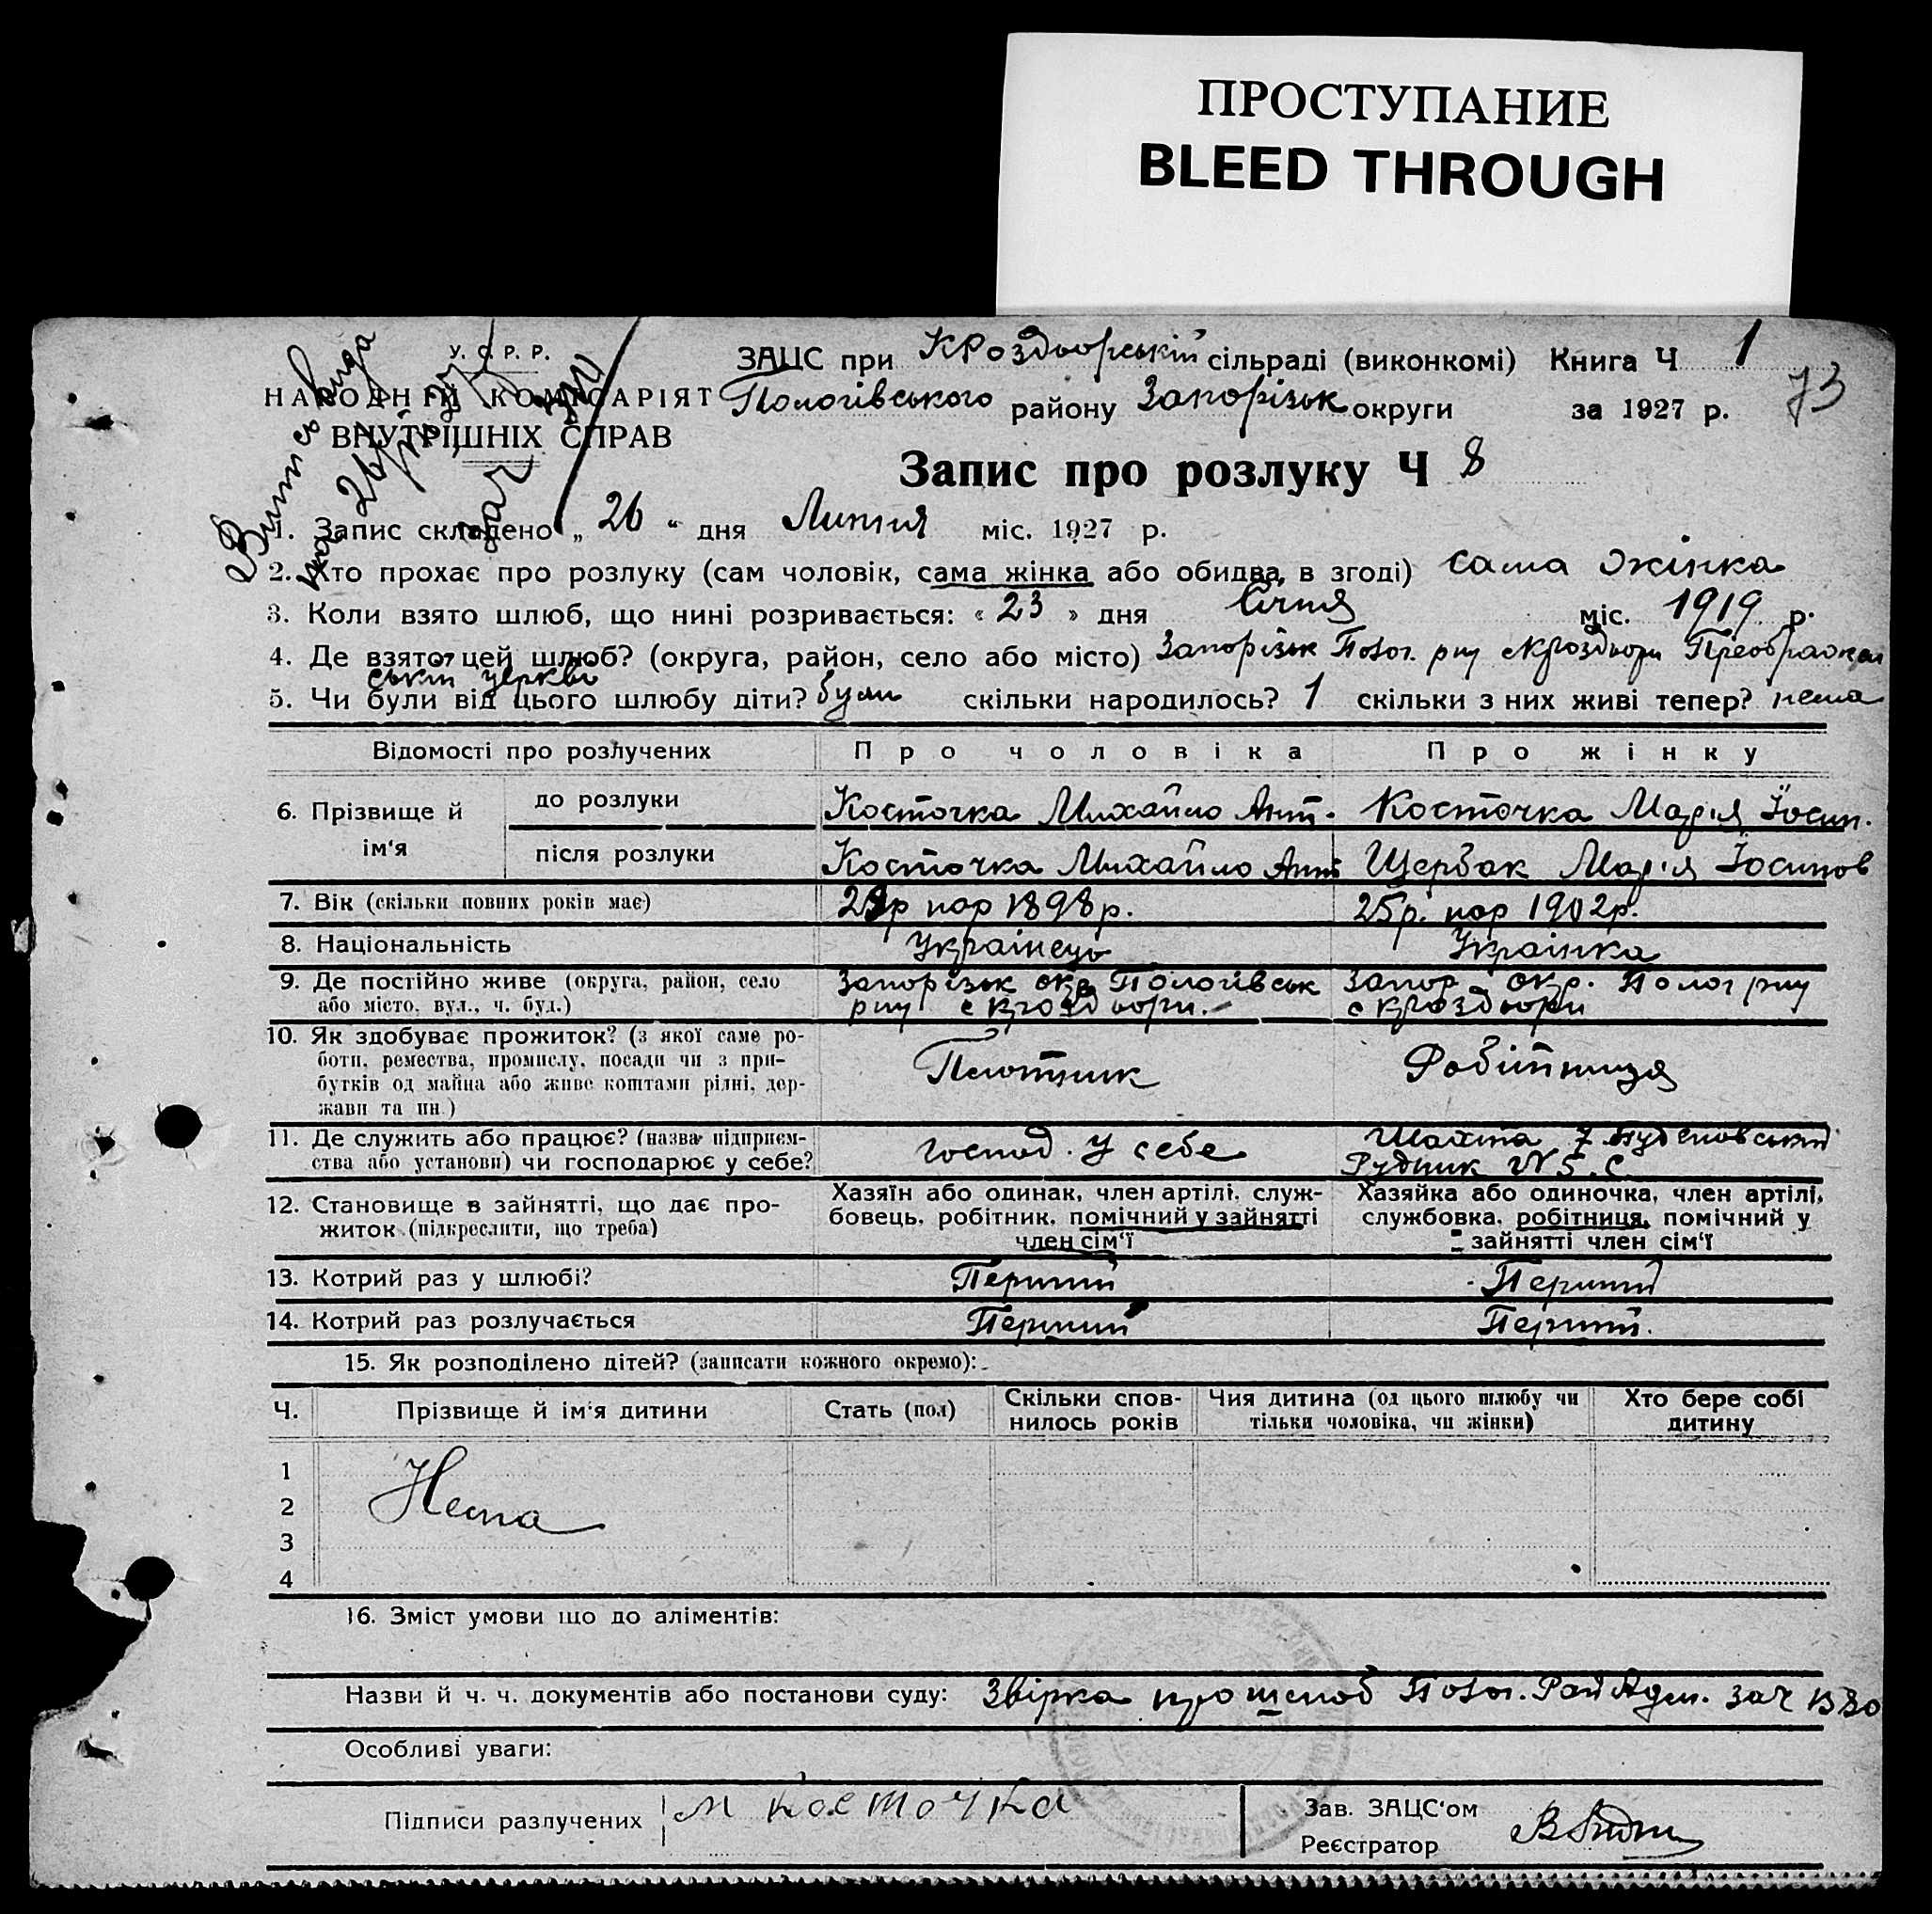 ПРОСТУПАНИЕ
BLEED THROUGH
У. С. Р. Р.
НАРОДНІЙ КОМІСАРІЯТ
ВНУТРІШНІХ СПРАВ
ЗАЦС при КРоздорській сільраді (виконкомі) Книга Ч 1
73
Пологівського району Запорізьк округи за 1927 р.
Запис про розлуку Ч 8
1. Запис складено „ 26 “ дня Липня міс. 1927 р.
2. Хто прохає про розлуку (сам чоловік, сама жінка або обидва, в згоді) сама жінка
3. Коли взято шлюб, що нині розривається: « 23 » дня Січня міс. 1919 р.
4. Де взято цей шлюб? (округа, район, село або місто) Запорізьк Полог. рну с Кроздори Преображен
ській церкві
5. Чи були від цього шлюбу діти? були скільки народилось? 1 скільки з них живі тепер? нема
Відомості про розлучених Про чоловіка Про жінку
6. Прізвище й ім‘я
до розлуки Косточка Михайло Ант. Косточка Марія Йосип.
після розлуки Косточка Михайло Ант Щербак Марія Йосипов
7. Вік (скільки повних років має) 29р нар 1898р. 25р. нар 1902р.
8. Національність Українець Українка
9. Де постійно живе (округа, район, село
або місто, вул., ч. буд.)
Запорізьк окр Пологівськ
рну с Кроздори.
Запор. окр. Полог рну
с Кроздори
10. Як здобуває прожиток? (з якої саме ро-
боти, ремества, промислу, посади чи з при-
бутків од майна або живе коштами рідні, дер-
жави та ин.)
Плотник Робітниця
11. Де служить або працює? (назва підприєм-
ства або установи) чи господарює у себе?
господ. у себе
Шахта 7 Будьоновський
Рудник
12. Становище в зайнятті, що дає про-
житок (підкреслити, що треба)
Хазяїн або одинак, член артілі, служ-
бовець, робітник, помічний у зайнятті
член сім‘ї
Хазяйка або одиночка, член артілі,
службовка, робітниця, помічний у
зайнятті член сім‘ї
13. Котрий раз у шлюбі? Перший Перший
14. Котрий раз розлучається Перший Перший.
15. Як розподілено дітей? (записати кожного окремо):
Ч. Прізвище й ім‘я дитини Стать (пол) Скільки спов-
нилось років Чия дитина (од цього шлюбу чи
тільки чоловіка, чи жінки) Хто бере собі
дитину
1
2 Нема
3
4
16. Зміст умови що до аліментів:
Назви й ч. ч. документів або постанови суду: Звірка про шлюб Полог. РайАдм. за ч
Особливі уваги:
Підписи разлучених М Косточка
Зав. ЗАЦС‘ом
Реєстратор